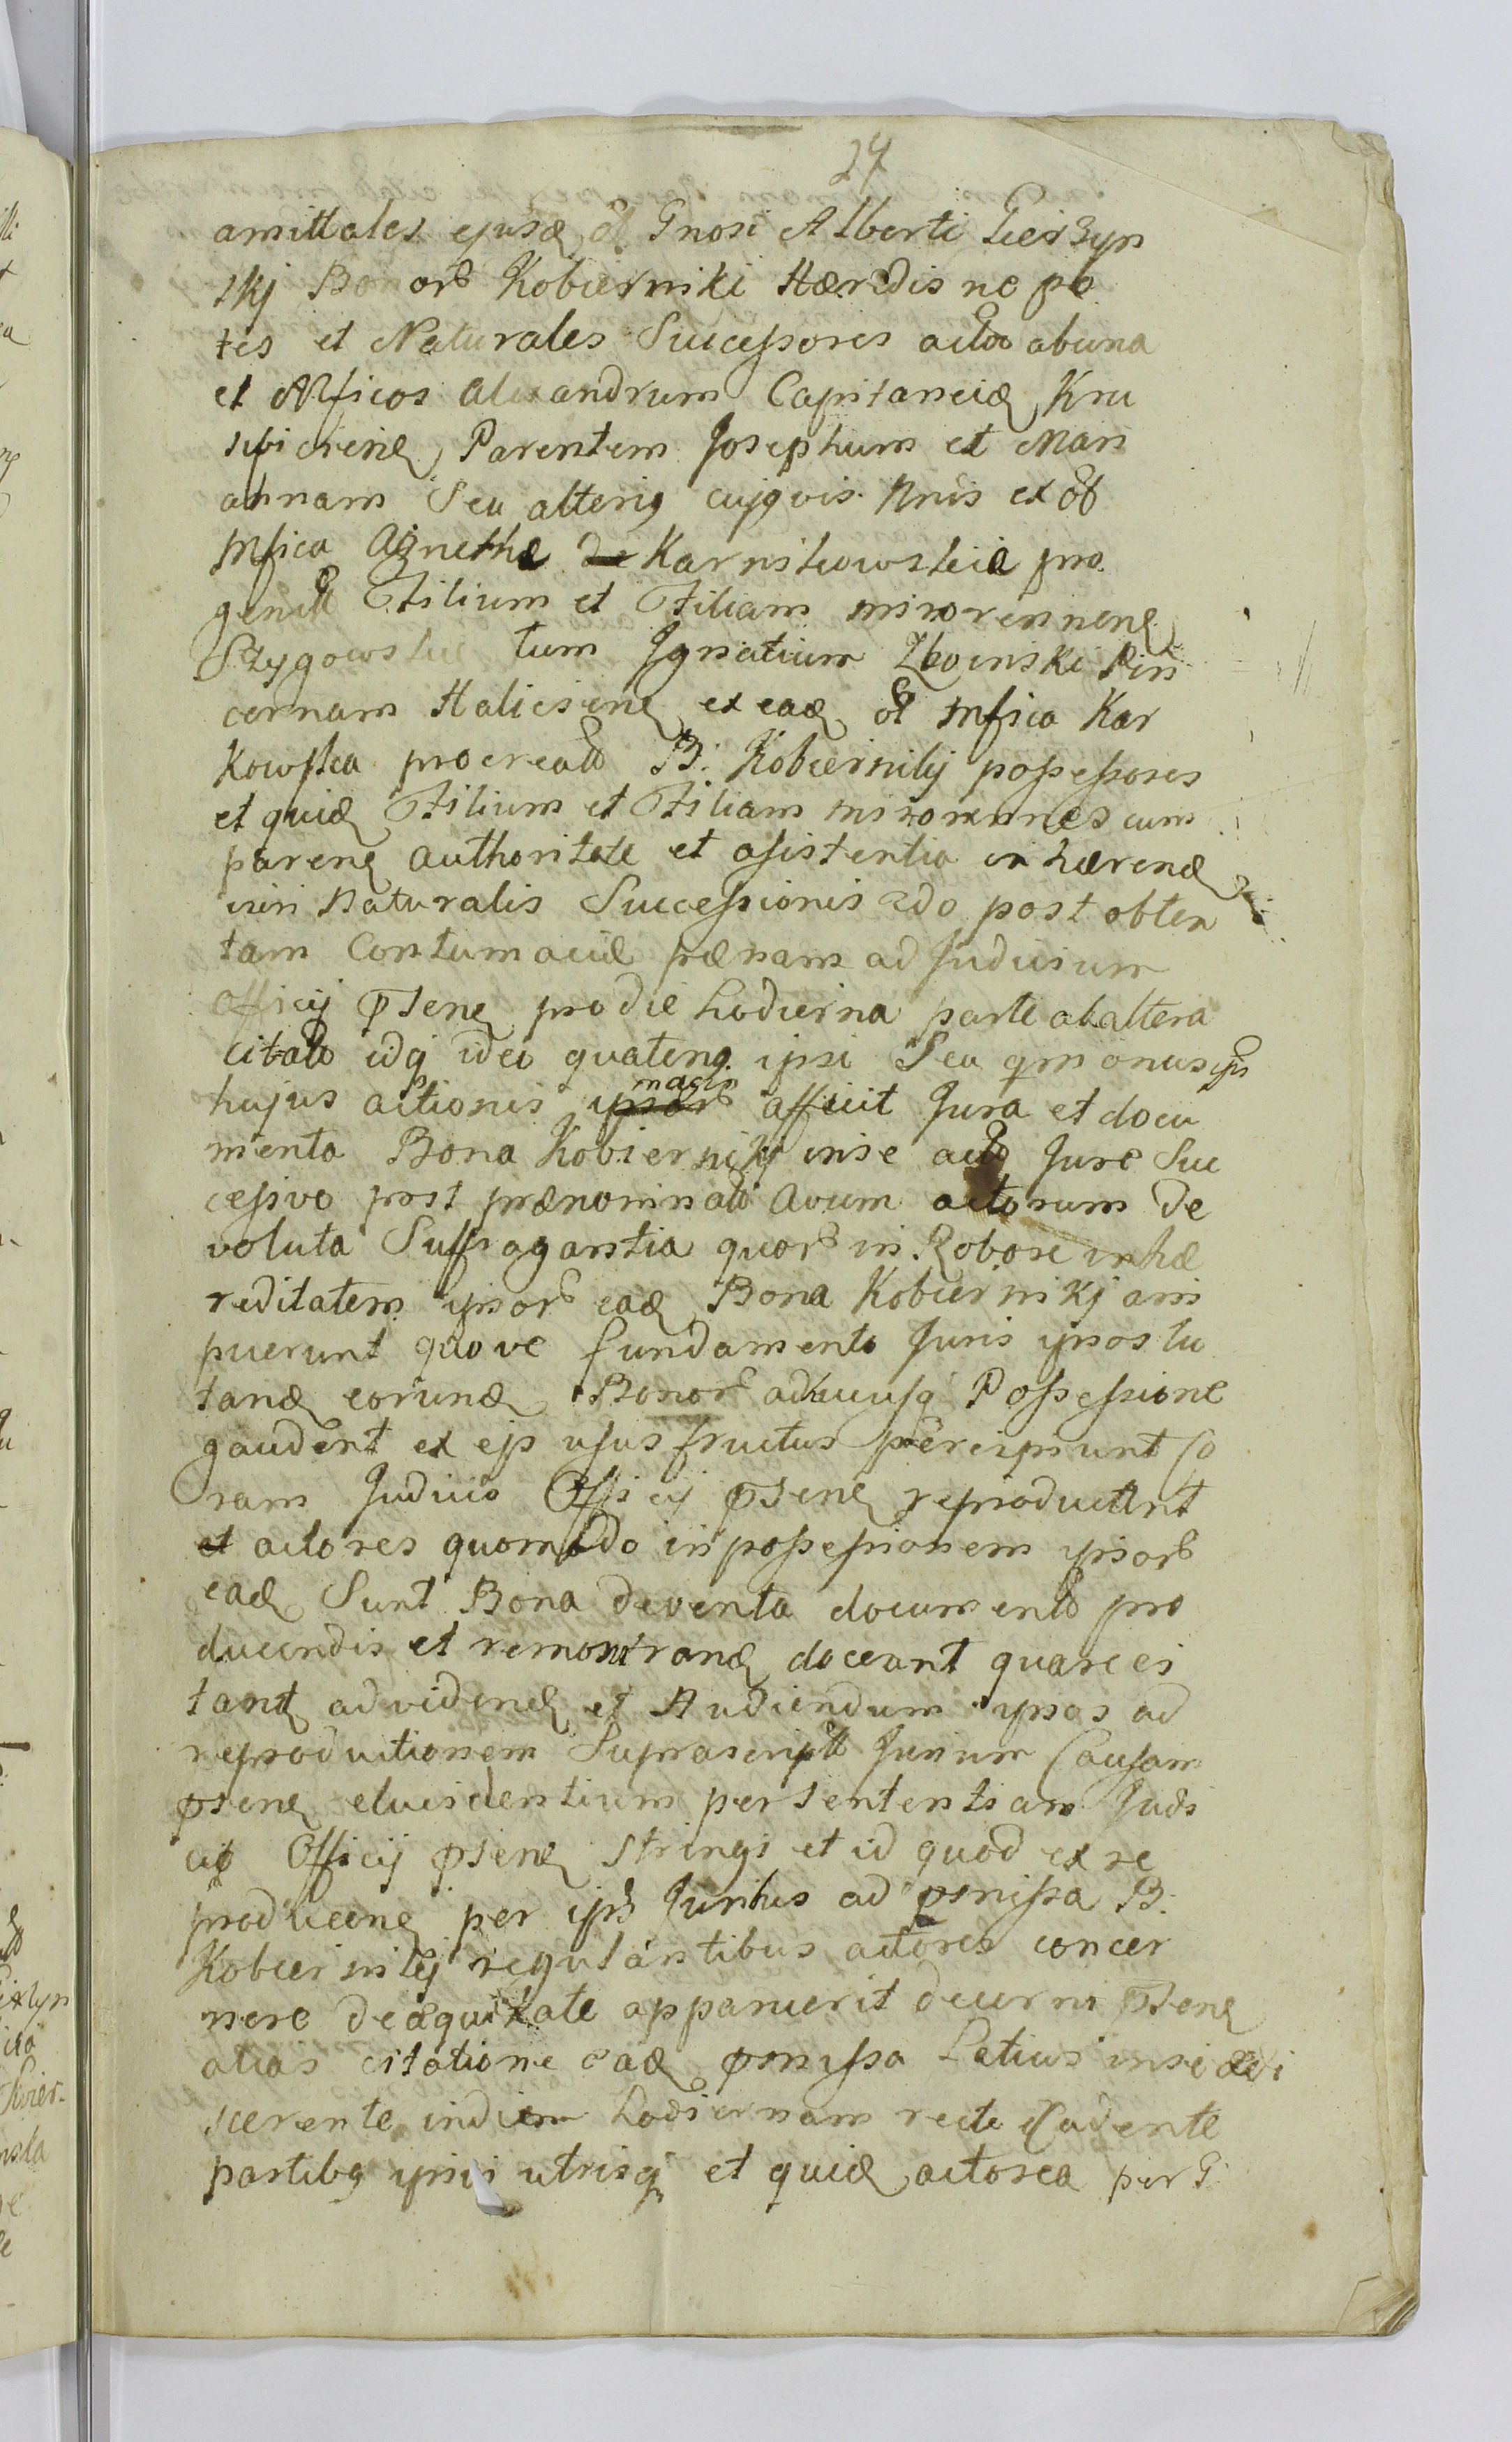 24
amittales ejusd ol Gnosi Alberti Gierzyn
skj Bonor Kobierniki Hæredis nepo
tes et Naturales Successores actor abuna
et Mficos Alexandrum Capitaneid Kru
Parentem Josephum et Mari
annam Seu alterig cujqvis Nnis ex ol
Mfica Agnethæ Karnkowskiæ pro
genit Filium et Filiam minorennen
Szygowskie tum Ignatium Zboinski Pin
cernam Haliciens ex ead ol Mfica Kar
kowska procreato B: Kobiernikj possessores
et quid Filium et Filiam minorennes cum
paren authoritate et assistentia inhærend
Naturalis Successionis ado post obten
tam Contumaciæ pænam ad Judicium
Officij psen pro die hodierna parte ab altera
citato idq ideo quateng ipsi Seu qm onus ips
hujus actionis magis afficit Jura et docu
menta Bona Kobiernikj in se acto Jure Suc
cessivo post prænominato Avum actorum de
voluta Suffragantia quor in Robore in hæ
reditatem ipsor ead Bona Kobiernikj arri
puerunt quo ve fundamento Juris ipsos tu
tand eorund Bonor adhucusq Possessione
gaudent ex ejs usus fructus percipiunt Co
ram Judicio Officij psen reproducant
et actores quomodo in possessionem ipsor
ead Sunt Bona deventa documento pro
ducendis et remonstrand doceant quare ci
tant ad vidend et Audiendum ipsos ad
reproductionem Suprascript Jurium Causam
psen elucidentium per sententiam Judi
cij Officij psen stringi et id quod ex re
producene per ips Juribus ad pmissa B:
Kobiernikj regulantibus actores concer
nere de æquitate apparuerit decerni psen
alias citatione ead pmissa Latius in se edi
scerente in diem hodiernam recte Cadente
partibg ipsis utrisq et quid actorea per G: